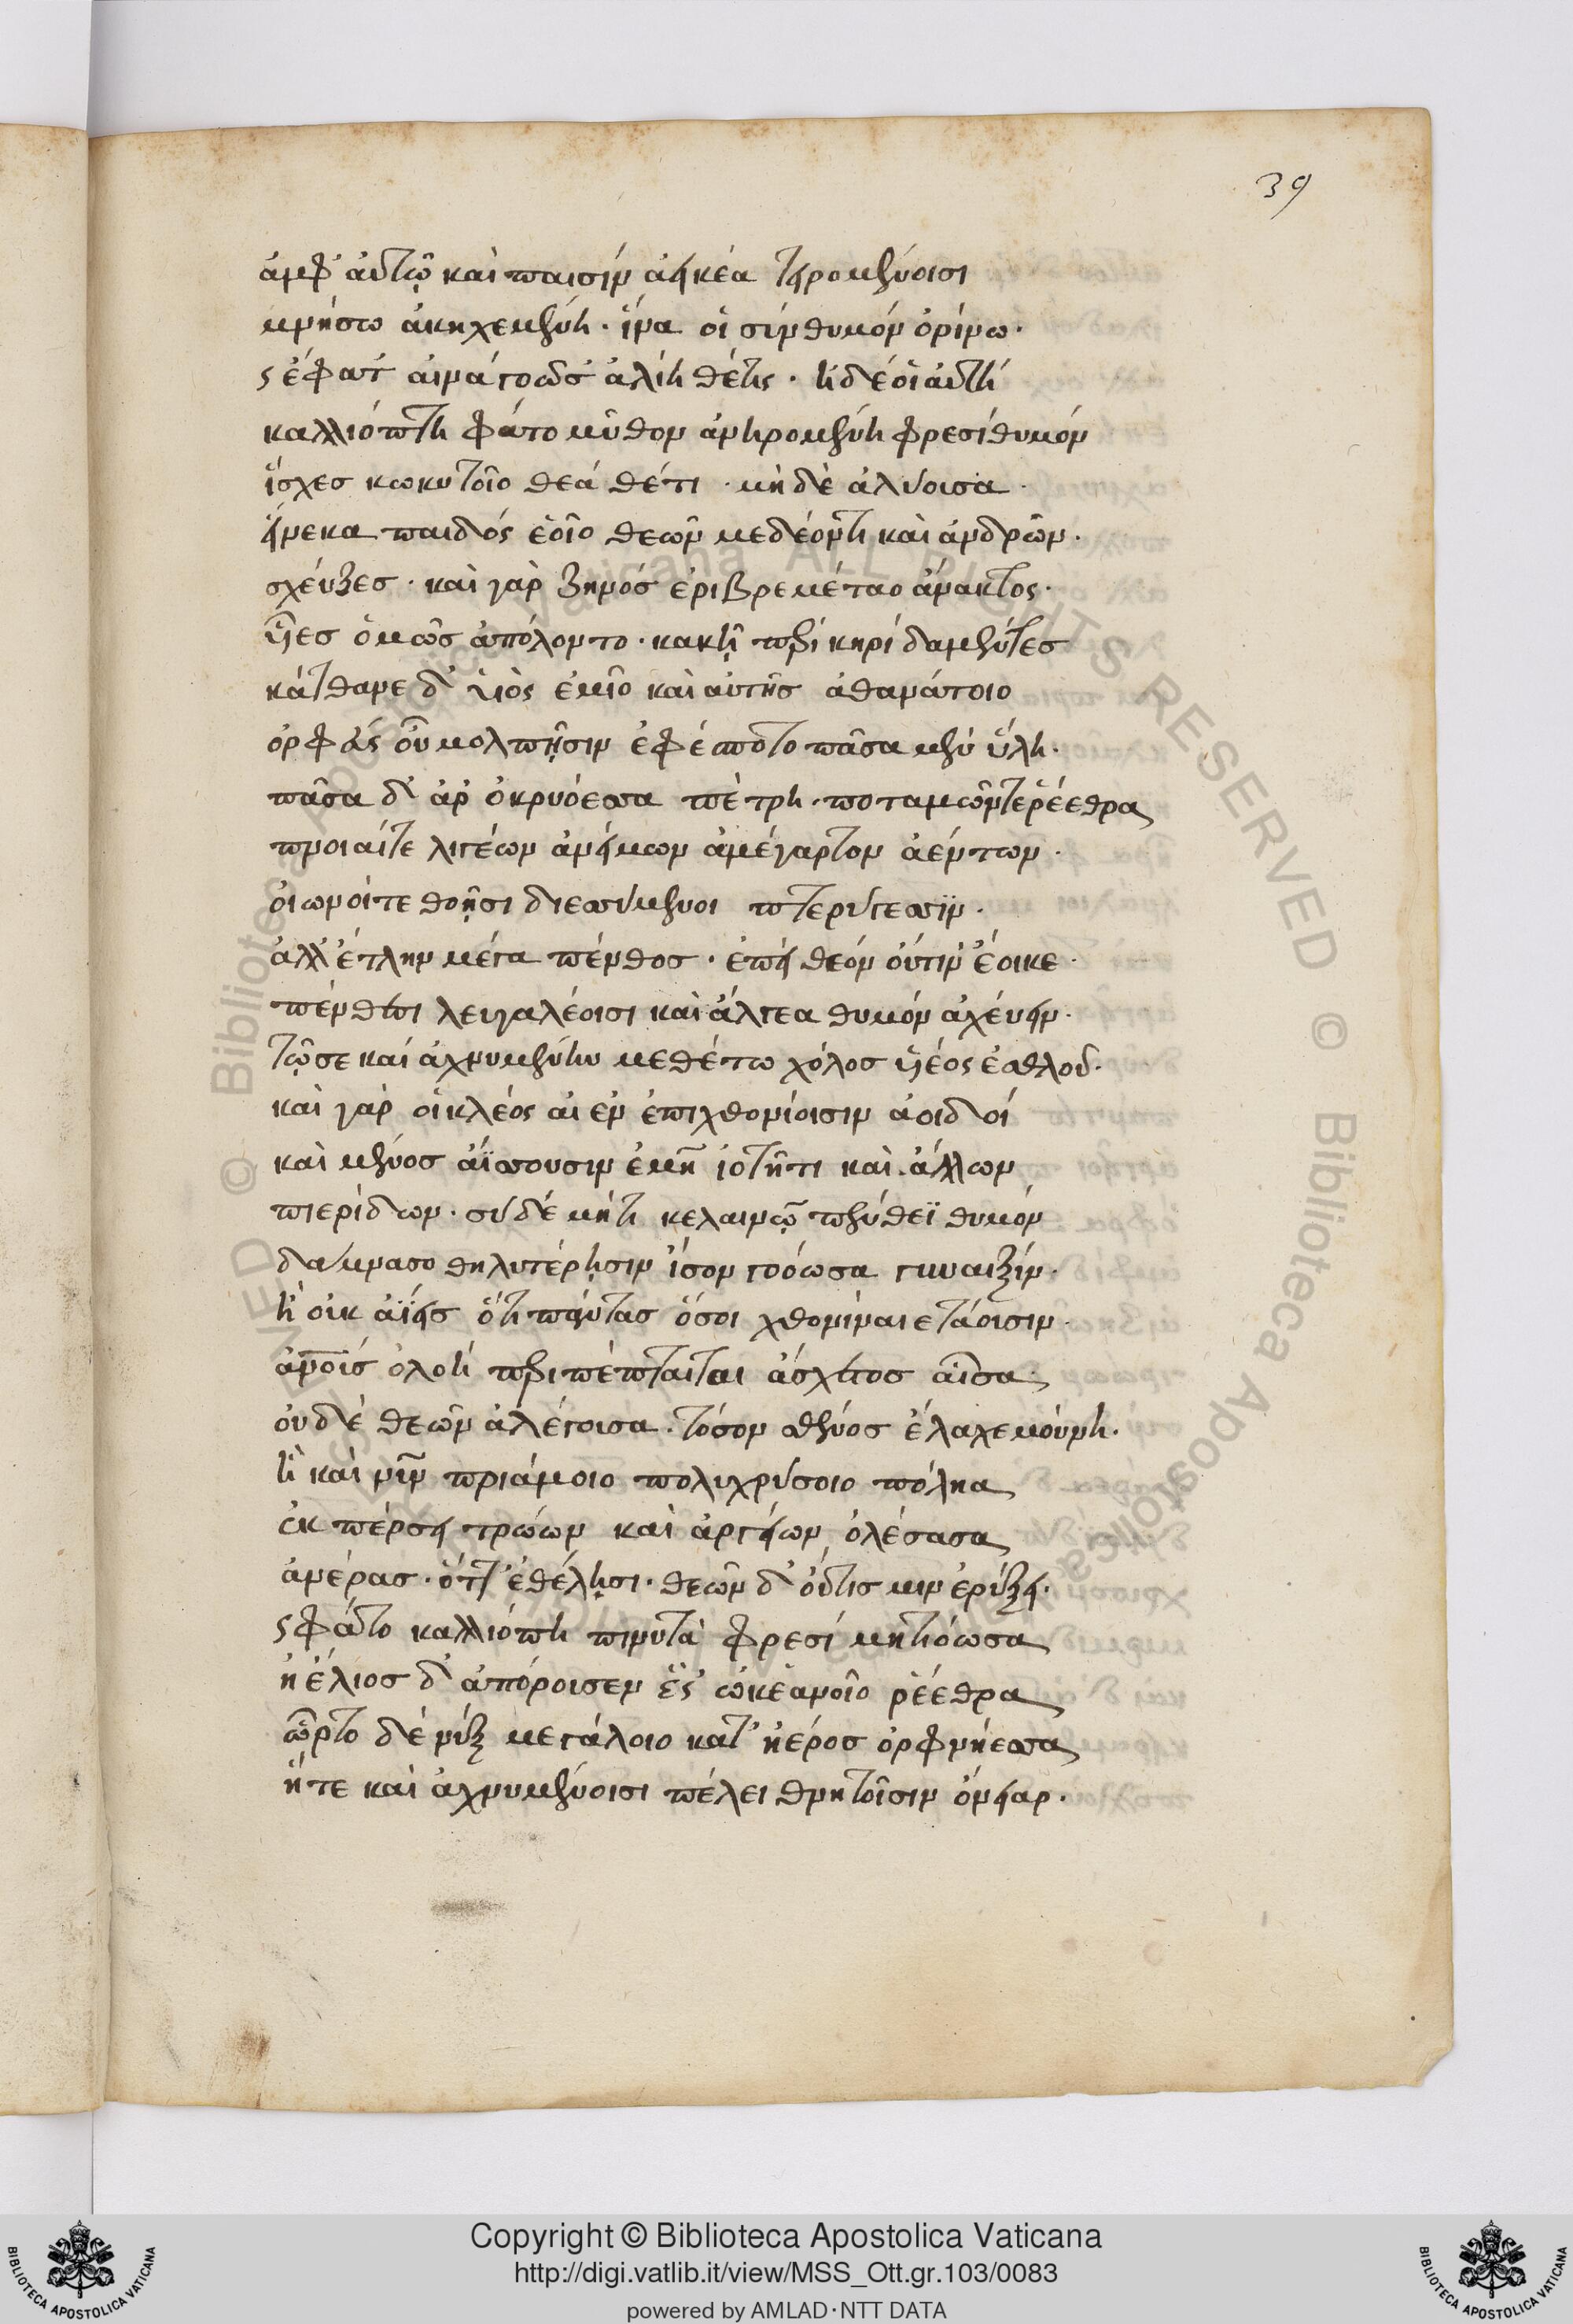 39
ἀμφ' αὐτῷ καὶ παισὶν ἀεικέα τειρομένοισι
μνήσω ἀκηχεμένη· ἵνα οἱ σὺν θυμὸν ὀρίνω·
ς ἔφατ' αἰνὰ γοῶσ' ἁλίη θέτις· ἡ δέ οἱ αὐτὴ
καλλιόπη φάτο μῦθον ἀνηρομένη φρεσὶ θυμόν
ἴσχεσ κωκυτοῖο θεὰ θέτι· μὴ δὲ ἀλύουσα·
εἵνεκα παιδὸς ἑοῖο θεῶν μεδέοντι καὶ ἀνδρῶν·
σκύζεσ· καὶ γὰρ ζηνὸσ ἐριβρεμέταο ἄνακτος·
υἷεσ ὁμῶσ ἀπόλοντο· κακῇ περὶ κηρὶ δαμέντεσ
κάτθανε δ' υἱὸς ἐμῖο καὶ αὐτῆσ ἀθανάτοιο
ὀρφεύς οὗ μολπῇσιν ἐφέσπετο πᾶσα μὲν ὕλη·
πᾶσα δ' ἄρ' ὀκρυόεσσα πέτρη· ποταμῶν τε ῥέεθρα
πνοιαί τε λιγέων ἀνέμων ἀμέγαρτον ἀέντων·
οἰωνοί τε θοῇσι διεσσύμενοι πτερύγεσσϊν·
ἀλλ' ἔτλην μέγα πένθοσ· ἐπεὶ θεὸν οὔτιν' ἔοικε·
πένθεσι λευγαλέοισι καὶ ἄλγεα θυμὸν ἀχεύειν·
τῷ σε καὶ ἀχνυμένην μεθέτω χόλοσ υἷέος ἐσθλοῦ·
καὶ γάρ οἱ κλέος αἰὲν ἐπιχθονίοισιν ἀοιδοί
καὶ μένοσ ἀείσουσιν ἐμῇ ἰότητι καὶ ἄλλων
πιερίδων· σὺ δὲ μή τι κελαινῷ πένθεϊ θυμὸν
δάμνασο θηλυτέρῃσιν ἴσον γοόωσα γυναιξίν·
ἢ οὐκ ἀΐεισ ὅτι πάντασ ὅσοι χθονὶ ναιετάουσιν·
ἀνθρώπους ὀλοὴ περιπέπταται ἄσχετοσ αἶσα·
οὐδὲ θεῶν ἀλέγουσα· τόσον σθένοσ ἔλλαχε μούνη·
ἣ καὶ νῦν πριάμοιο πολυχρύσοιο πόληα
ἐκπέρσει τρώων καὶ ἀργείων ὀλέσασα
ἀνέρασ· ὅντ' ἐθέλῃσι· θεῶν δ' οὔτισ μιν ἐρύξει·
ς φάτο καλλιόπη πινυτὰ φρεσὶ μητιόωσα
ἠέλιοσ δ' ἀπόρουσεν ἐς ὠκεανοῖο ῥέεθρα
ὦρτο δὲ νὺξ μεγάλοιο κατ' ἠέροσ ὀρφνήεσσα
ἥ τε καὶ ἀχνυμένοισι πέλει θνητοῖσιν ὄνειαρ·
Copyright © Biblioteca Apostolica Vaticana
http://digi.vatlib.it/view/MSS_Ott.gr.103/0083
powered by AMLAD·NTT DATA